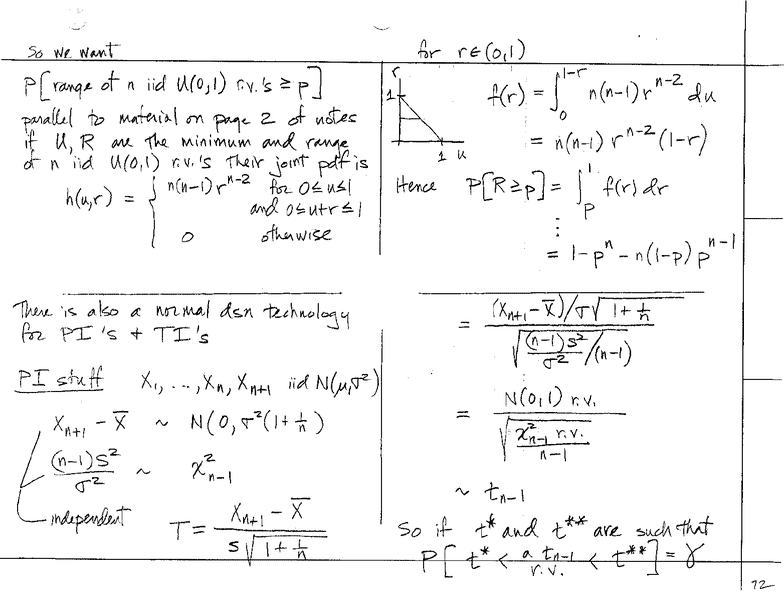 So we want
P[range of n iid U(0,1) r.v.'s ≥ p]
parallel to material on page 2 of notes
if U, R are the minimum and range
of n iid U(0,1) r.v.'s their joint pdf is
h(u,r) = { n(n-1) r^{n-2} for 0≤u≤1
and 0≤u+r≤1
0 otherwise
for r∈(0,1)
r
1
1 u
f(r) = ∫_0^{1-r} n(n-1) r^{n-2} du
= n(n-1) r^{n-2} (1-r)
Hence P[R≥p] = ∫_p^1 f(r) dr
⋮
= 1-p^n - n(1-p) p^{n-1}
There is also a normal dsn technology
for PI's + TI's
PI stuff X_1, ..., X_n, X_{n+1} iid N(μ,σ²)
X_{n+1} - X̄ ~ N(0, σ²(1+1/n))
(n-1)S²/σ² ~ χ²_{n-1}
independent
T = (X_{n+1} - X̄) / (S√(1+1/n))
= ((X_{n+1} - X̄)/σ√(1+1/n)) / √((n-1)S²/σ² /(n-1))
= N(0,1) r.v. / √(χ²_{n-1} r.v. / n-1)
~ t_{n-1}
So if t* and t** are such that
P[ t* < a t_{n-1} r.v. < t** ] = γ
72